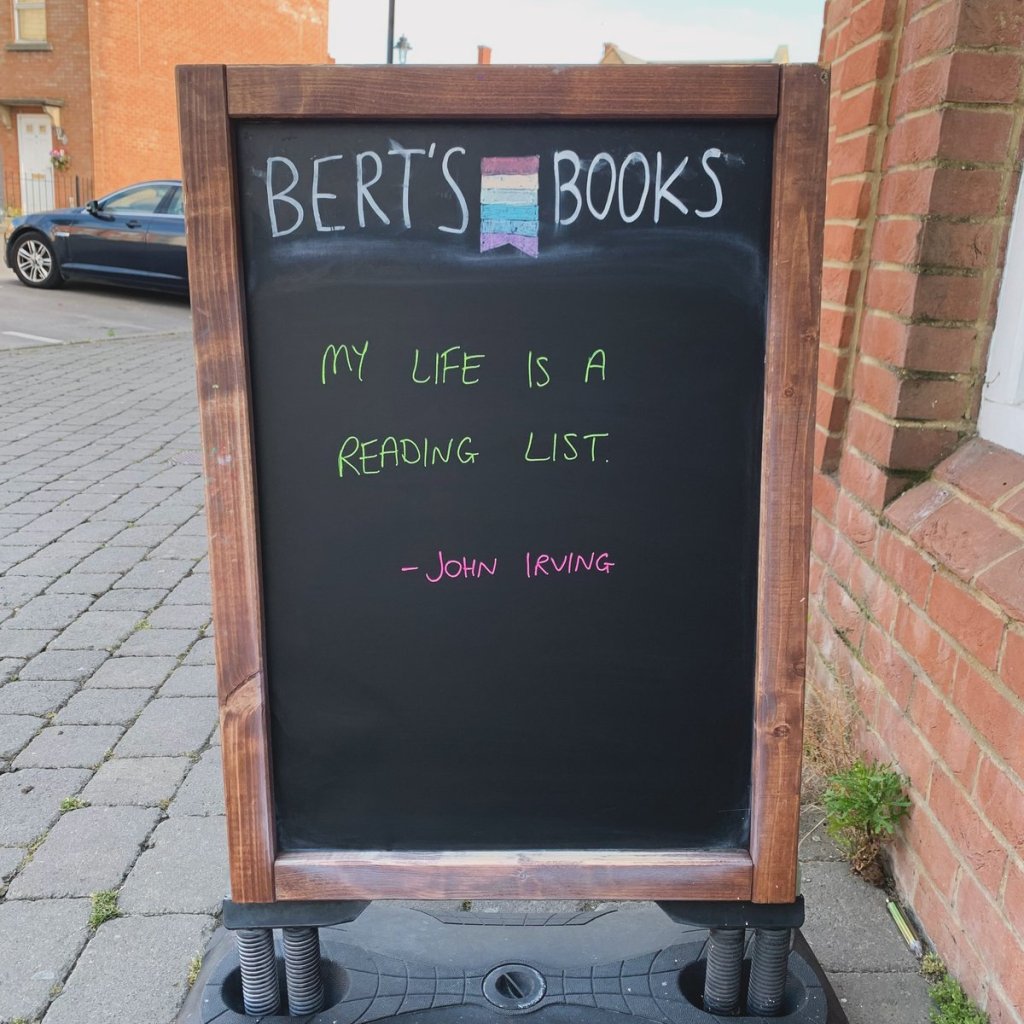 BERT'S BOOKS
MY LIFE IS A
READING LIST.
- JOHN IRVING